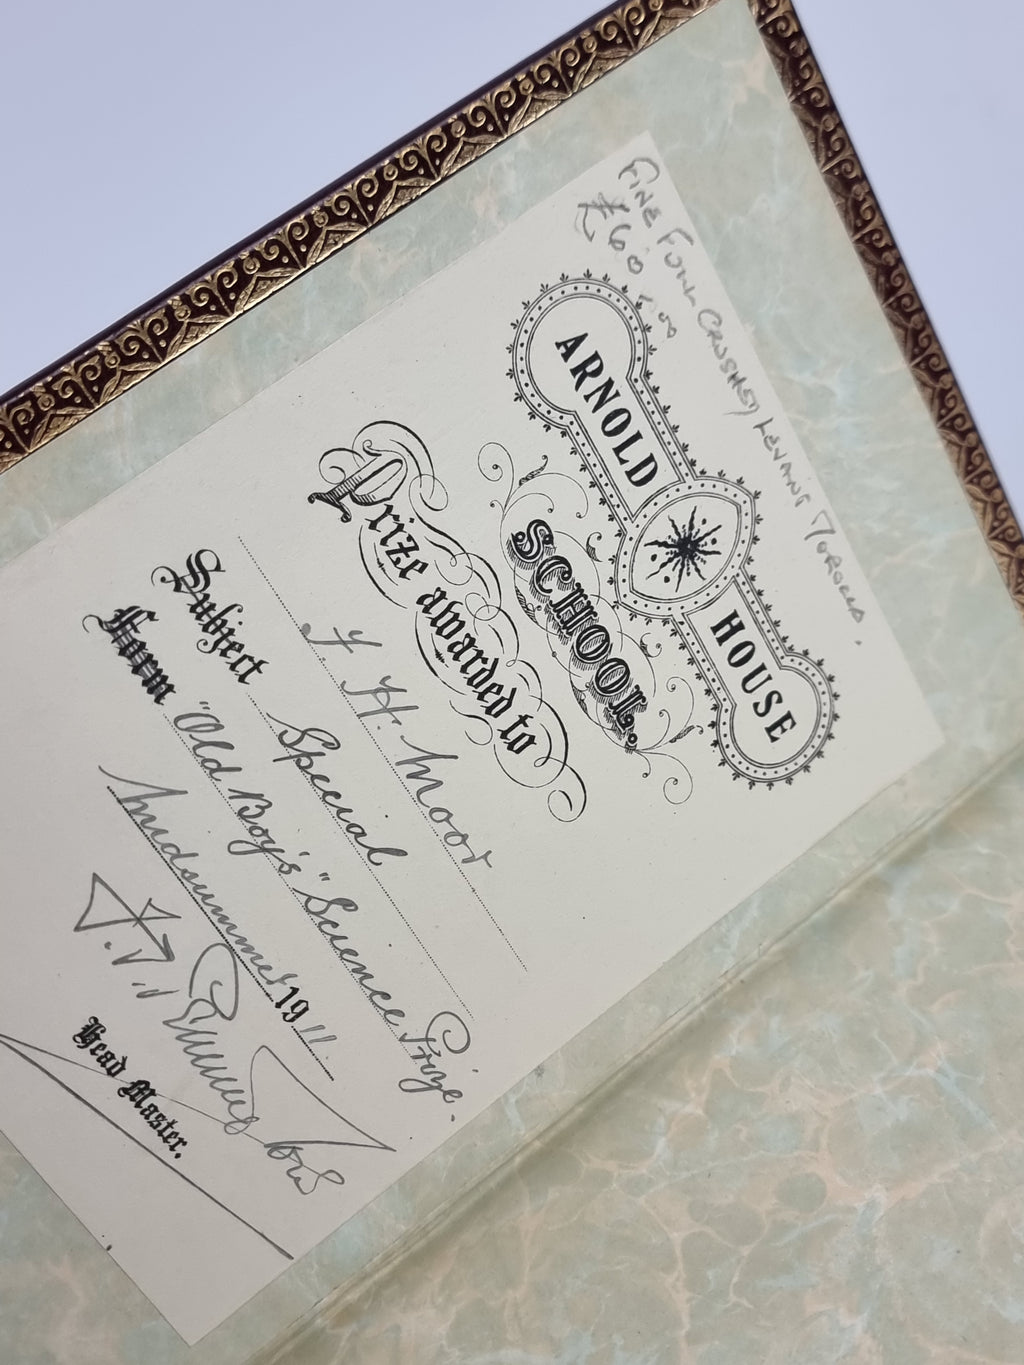 FINE FULL CRUSHED LEVANT MOROCCO.
£60.00
ARNOLD HOUSE
SCHOOL.
Prize awarded to
F. H. Moor
Subject Special
Form "Old Boy's" Science Prize.
Midsummer 1911.
Head Master.